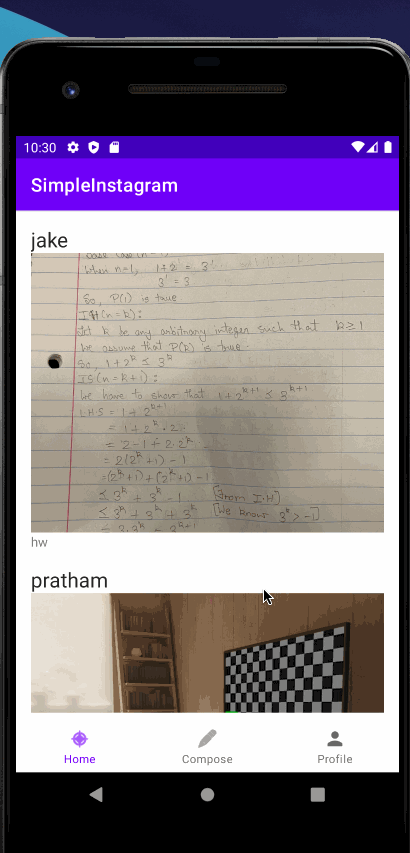 10:30
SimpleInstagram
jake
base case (n=
When n=1, 1+2¹ = 3¹
3¹ = 3
So, P(1) is true
IH (n=k):
Let k be any arbitrary integer such that k≥1
We assume that P(k) is true.
So, 1+2^k ≤ 3^k
IS (n=k+1):
We have to show that 1+2^{k+1} ≤ 3^{k+1}
L.H.S = 1+2^{k+1}
= 1+2^k·2
= 2-1+2·2^k
= 2(2^k+1) - 1
=(2^k+1)+(2^k+1)-1
≤ 3^k + 3^k - 1 [From I.H]
≤ 3^k + 3^k + 3^k [We know 3^k > -1]
≤ 3·3^k = 3^{k+1}
hw
pratham
Home Compose Profile